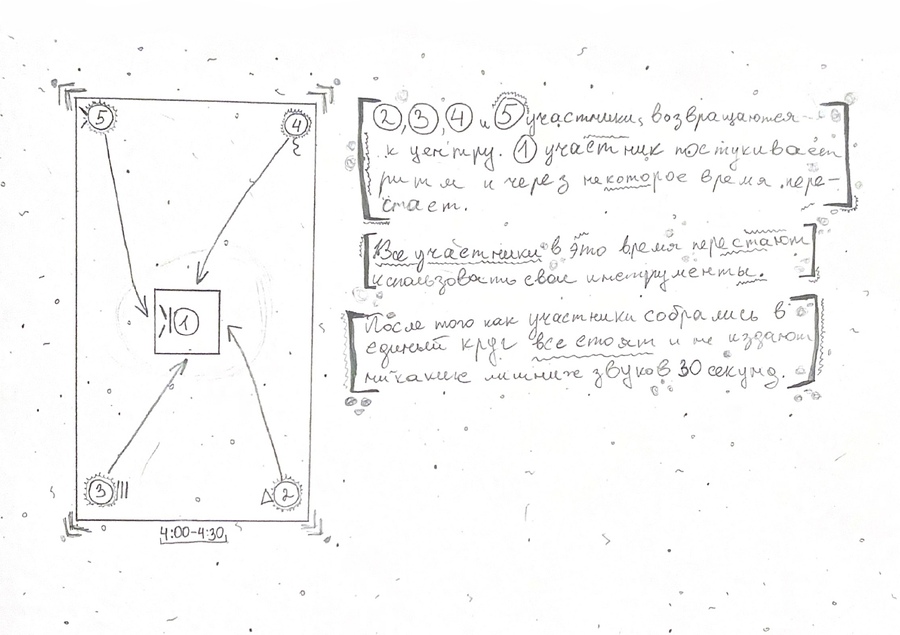 5
4
1
3
2
4:00-4:30
2, 3, 4 и 5 участники возвращаются
к центру. 1 участник постукивает
ритм и через некоторое время пере-
стает.
Все участники в это время перестают
использовать свои инструменты.
После того как участники собрались в
единый круг все стоят и не издают
никаких лишних звуков 30 секунд.